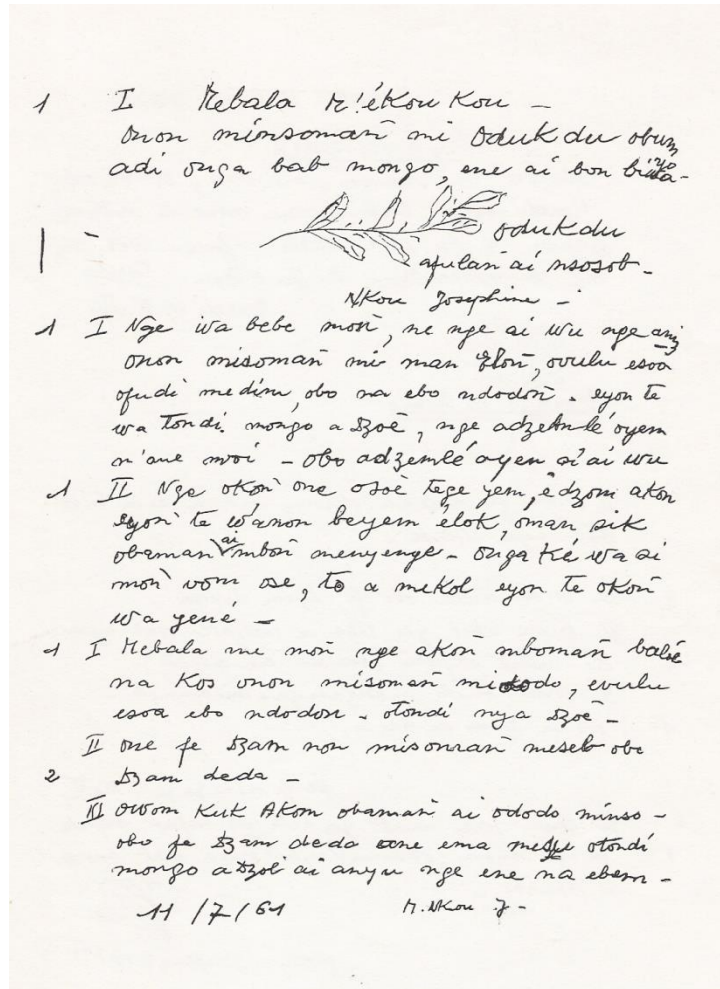 1 I Mebala M'ékou Kou -
onon minsomañ mi odukdu obum
adi onga bab mongo, ene ai bon bisa -
odukdu
afulañ ai nsosob -
Nkou Josephine -
1 I Nge wa bebe moñ, ne nge ai wu nge
onon misomañ mi man Eloñ, ovulu esoa
ofudi medim, obo na ebo ndodoñ. eyon te
wa tondi mongo a dzoé, nge adzemlé oyem
n'ane mvoi - obo adzemlé oyen si ai wu
1 II Nge okoñ one osoè tege yem, é dzom akon
eyoñ te wánon beyem élok, oman sik
obamañ ai mboñ menyenge - onga ké wa si
moñ vom ose, to a mekol eyon te okoñ
wa yené -
1 I Mebala me moñ nge akoñ mbomañ
na Kos onon misomañ miododo, evulu
esoa ebo ndodon. otondi nya dzoé -
II one fe dzam non misonrañ meseb obo
2 dzam deda -
III owom Kuk Akom obamañ ai ododo minso -
obo fe dzam deda one ema otondi
mongo adzoé ai anyu nge ene na ebem -
11/7/61 M. Nkou J -